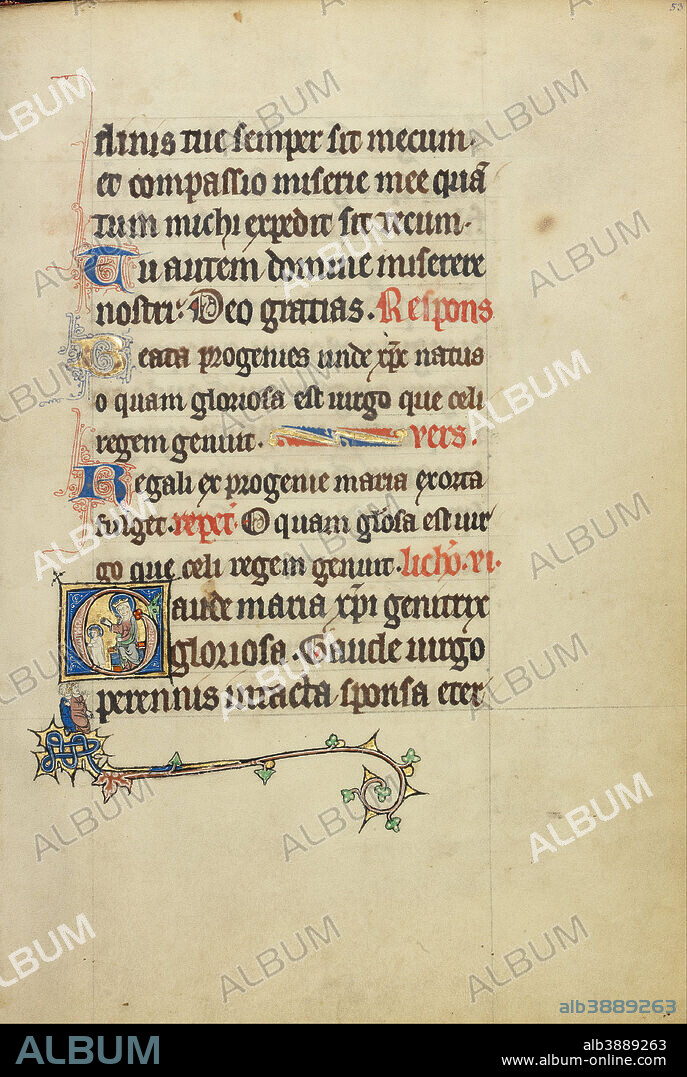 53
dinis tue semper sit mecum.
et compassio miserie mee quā
tum michi expedit sit tecum.
Tu autem domine miserere
nostri. Deo gratias. Respons
Beata progenies unde xp̄c natus
o quam gloriosa est uirgo que celi
regem genuit. vers.
Regali ex progenie maria exorta
fulget. repet. O quam gl̄osa est uir
go que celi regem genuit. lictıo. vi.
Gaude maria xp̄i genitrix
gloriosa. Gaude uirgo
perennis intacta sponsa eter
alb3889263
ALBUM
alb3889263
www.album-online.com